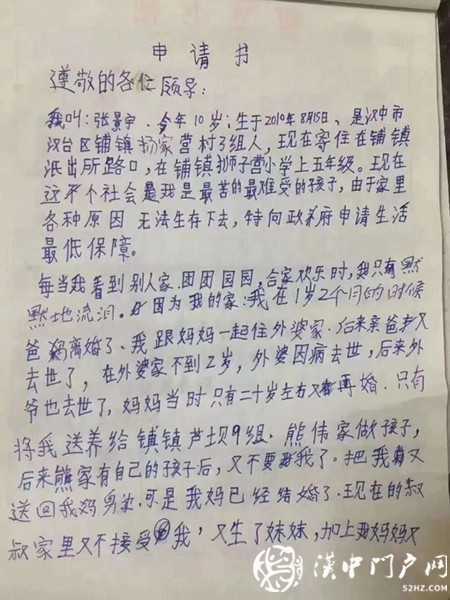 申请书
遵敬的各位领导:
我叫:张景宇.今年10岁;生于2010年8月15日、是汉中市
汉台区铺镇杨家营村3组人,现在寄住在铺镇
派出所路口,在铺镇狮子营小学上五年级。现在
这个社会是我是最苦的最难受的孩子,由于家里
各种原因 无法生存下去,特向政府申请生活
最低保障。
每当我看到别人家.团团园园,合家欢乐时,我只有黙
黙地流泪。因为我的家:我在1岁2个月的时候
爸妈离婚了、我跟妈妈一起住外婆家.后来亲爸又
去世了,在外婆家不到2岁,外婆因病去世,后来外
爷也去世了,妈妈当时只有二十岁左右又再婚.只有
将我送养给铺镇芦坝9组.熊伟家做孩子,
后来熊家有自己的孩子后,又不要我了。把我又
送回我妈身边.可是我妈已经结婚了.现在的叔
叔家里又不接受我,又生了妹妹,加上我妈妈又
汉中门户网
52HZ.COM